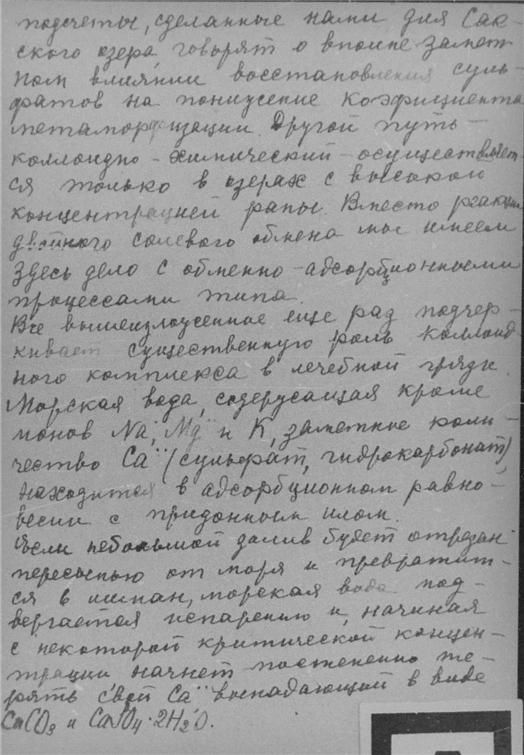 подсчеты, сделанные нами для Сак-
ского озера, говорят о вполне замет-
ном влиянии восстановления суль-
фатов на понижение коэфициента
метаморфизации. Другой путь -
коллоидно-химический - осуществляет-
ся только в озерах с высокой
концентрацией рапы. Вместо реакции
двойного солевого обмена мы имеем
здесь дело с обменно-адсорбционными
процессами типа.
Все вышеизложенное еще раз подчер-
кивает существенную роль коллоид-
ного комплекса в лечебной грязи.
Морская вода, содержащая кроме
ионов Na˙, Mg¨ и K˙, заметное коли-
чество Ca¨ (сульфат, гидрокарбонат)
находится в адсорбционном равно-
весии с придонным илом.
Если небольшой залив будет отрезан
пересыпью от моря и превратит-
ся в лиман, морская вода под-
вергается испарению и, начиная
с некоторой критической концен-
трации начнет постепенно те-
рять свой Ca¨ выпадающий в виде
CaCO₃ и CaSO₄·2H₂O.